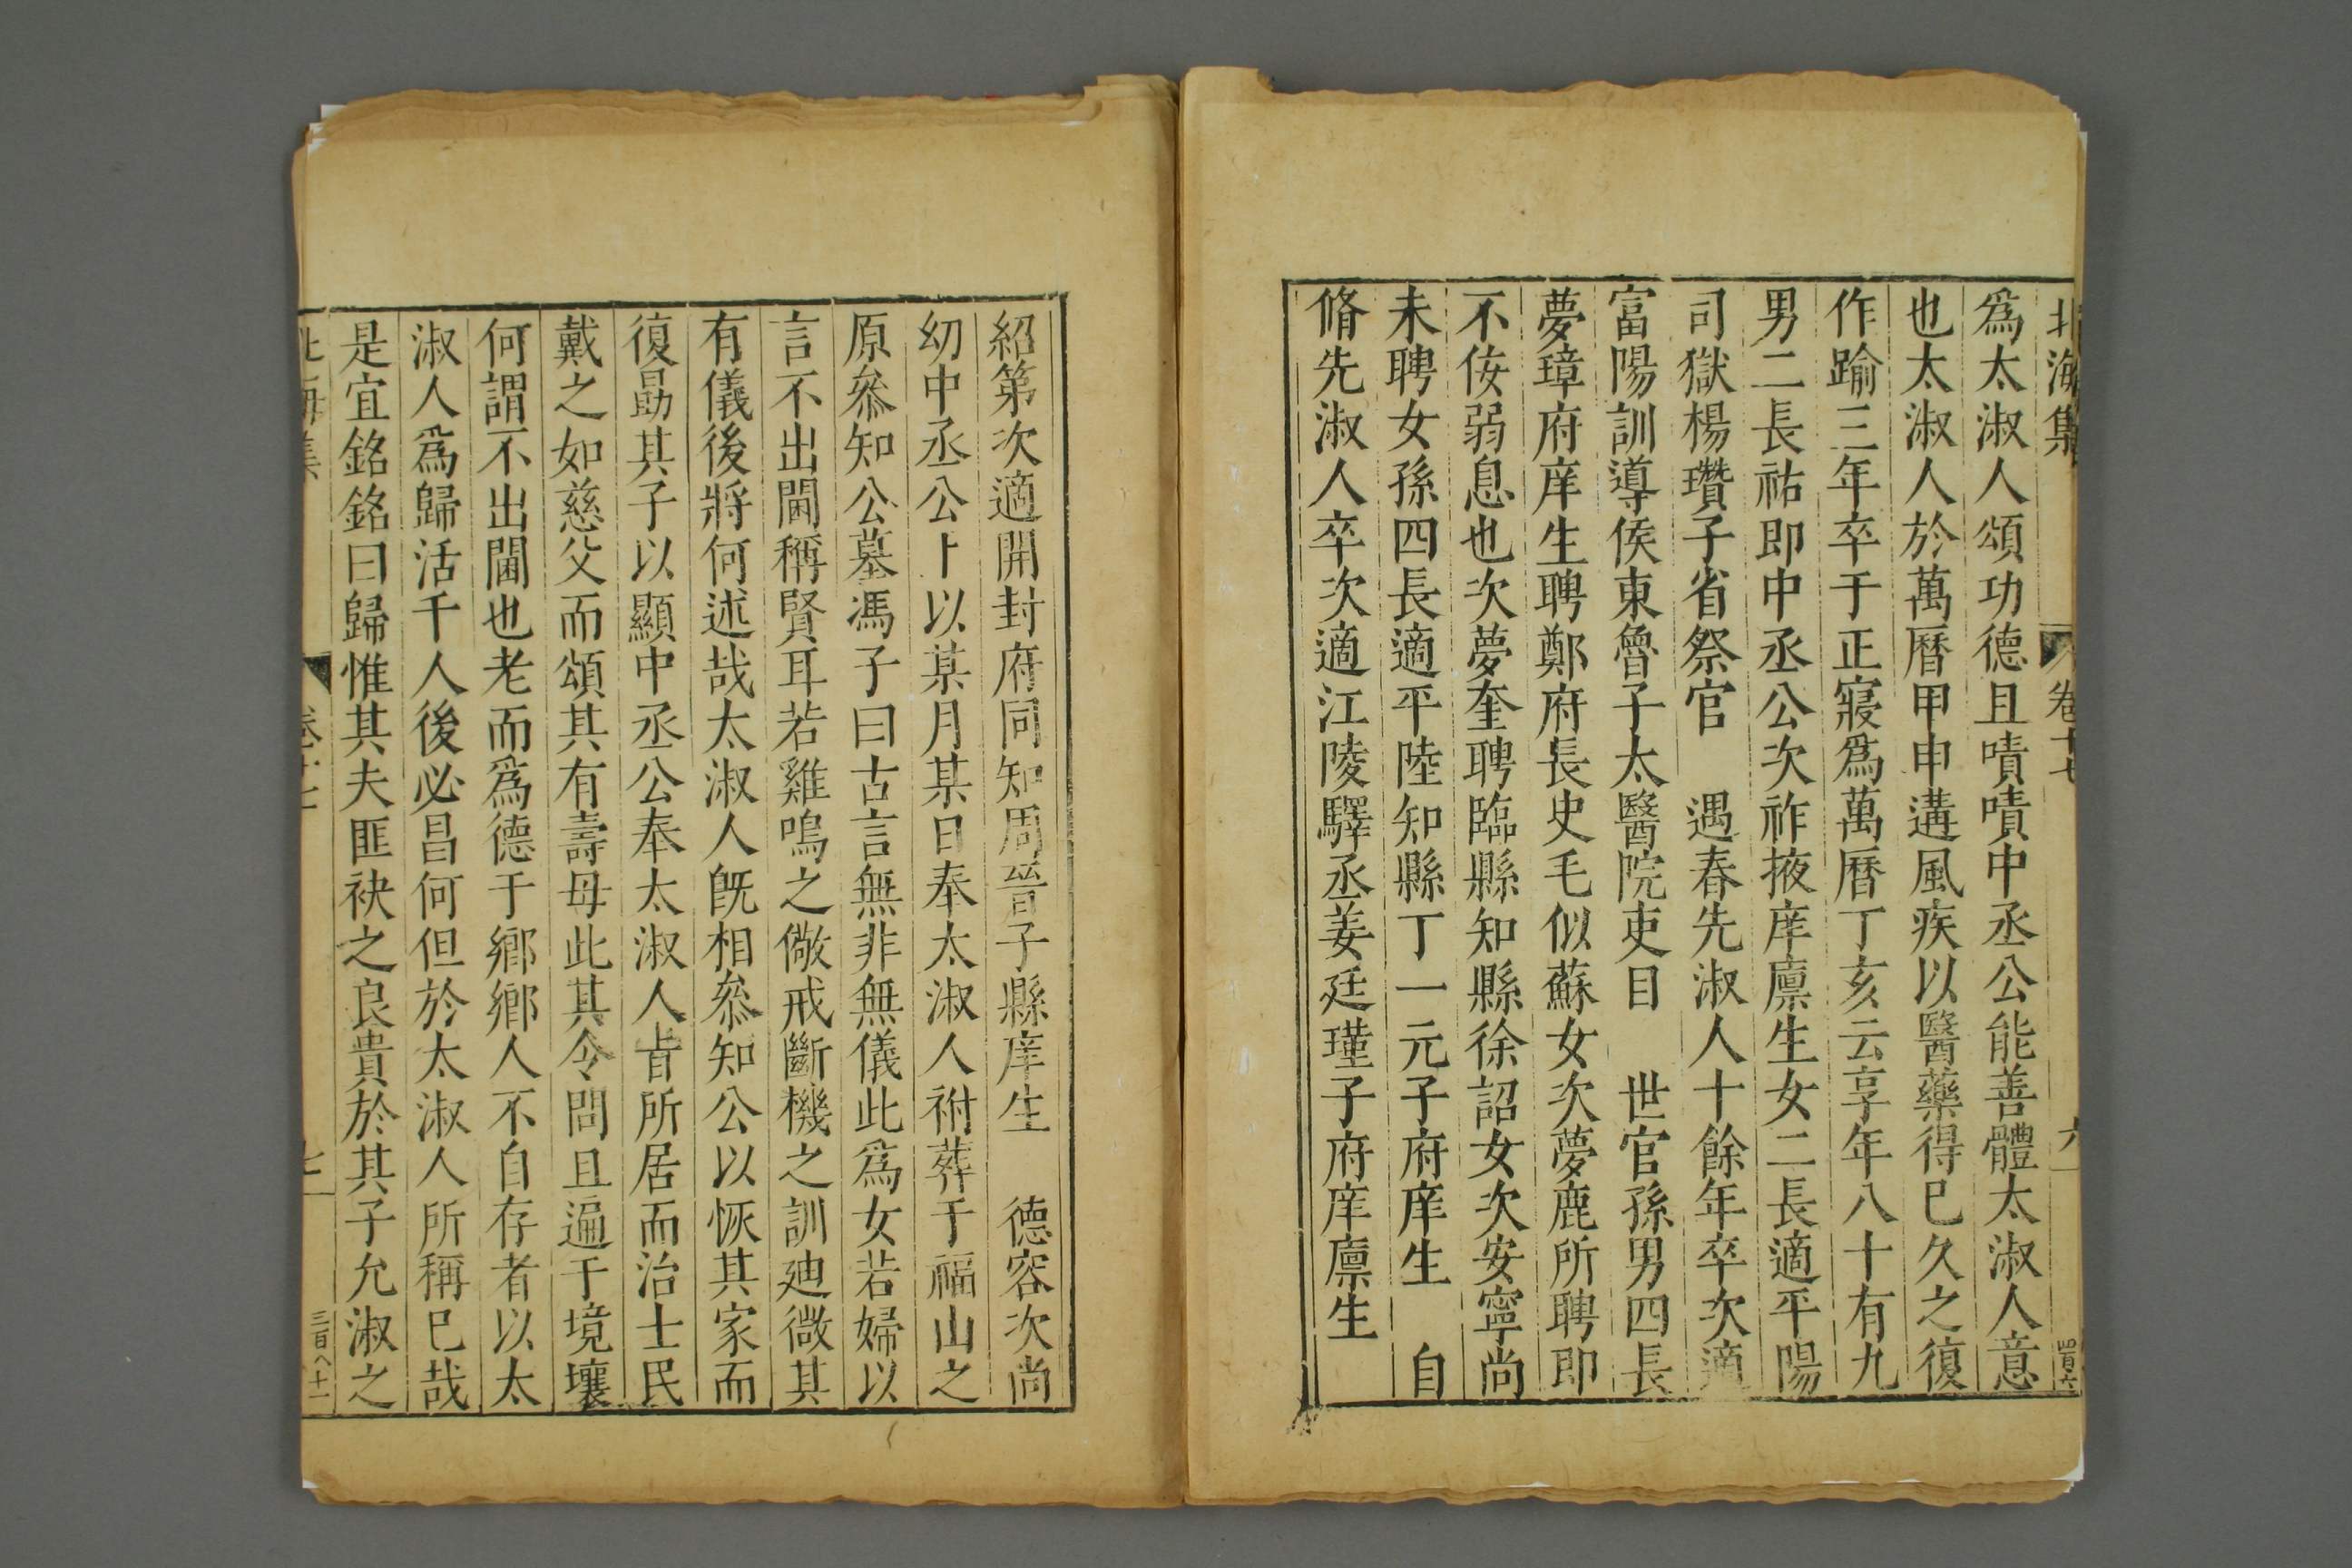 北海集 卷十七 六 四百六
爲太淑人頌功德且嘖嘖中丞公能善體太淑人意
也太淑人於萬曆甲申遘風疾以醫藥得已久之復
作踰三年卒于正寢爲萬曆丁亥云享年八十有九
男二長祐即中丞公次祚掖庠廪生女二長適平陽
司獄楊瓚子省祭官 遇春先淑人十餘年卒次適
富陽訓導侯東魯子太醫院吏目 世官孫男四長
夢璋府庠生聘鄭府長史毛似蘇女次夢鹿所聘即
不侫弱息也次夢奎聘臨縣知縣徐詔女次安寧尚
未聘女孫四長適平陸知縣丁一元子府庠生 自
脩先淑人卒次適江陵驛丞姜廷瑾子府庠廪生
紹第次適開封府同知周晉子縣庠生 德容次尚
幼中丞公卜以某月某日奉太淑人祔葬于福山之
原叅知公墓馮子曰古言無非無儀此爲女若婦以
言不出閫稱賢耳若雞鳴之儆戒斷機之訓廸微其
有儀後將何述哉太淑人旣相叅知公以恢其家而
復勗其子以顯中丞公奉太淑人㫖所居而治士民
戴之如慈父而頌其有壽母此其令問且遍于境壤
何謂不出閫也老而爲德于鄉鄉人不自存者以太
淑人爲歸活千人後必昌何但於太淑人所稱已哉
是宜銘銘曰歸惟其夫匪袂之良貴於其子允淑之
北海集 卷十七 七 三百八十一